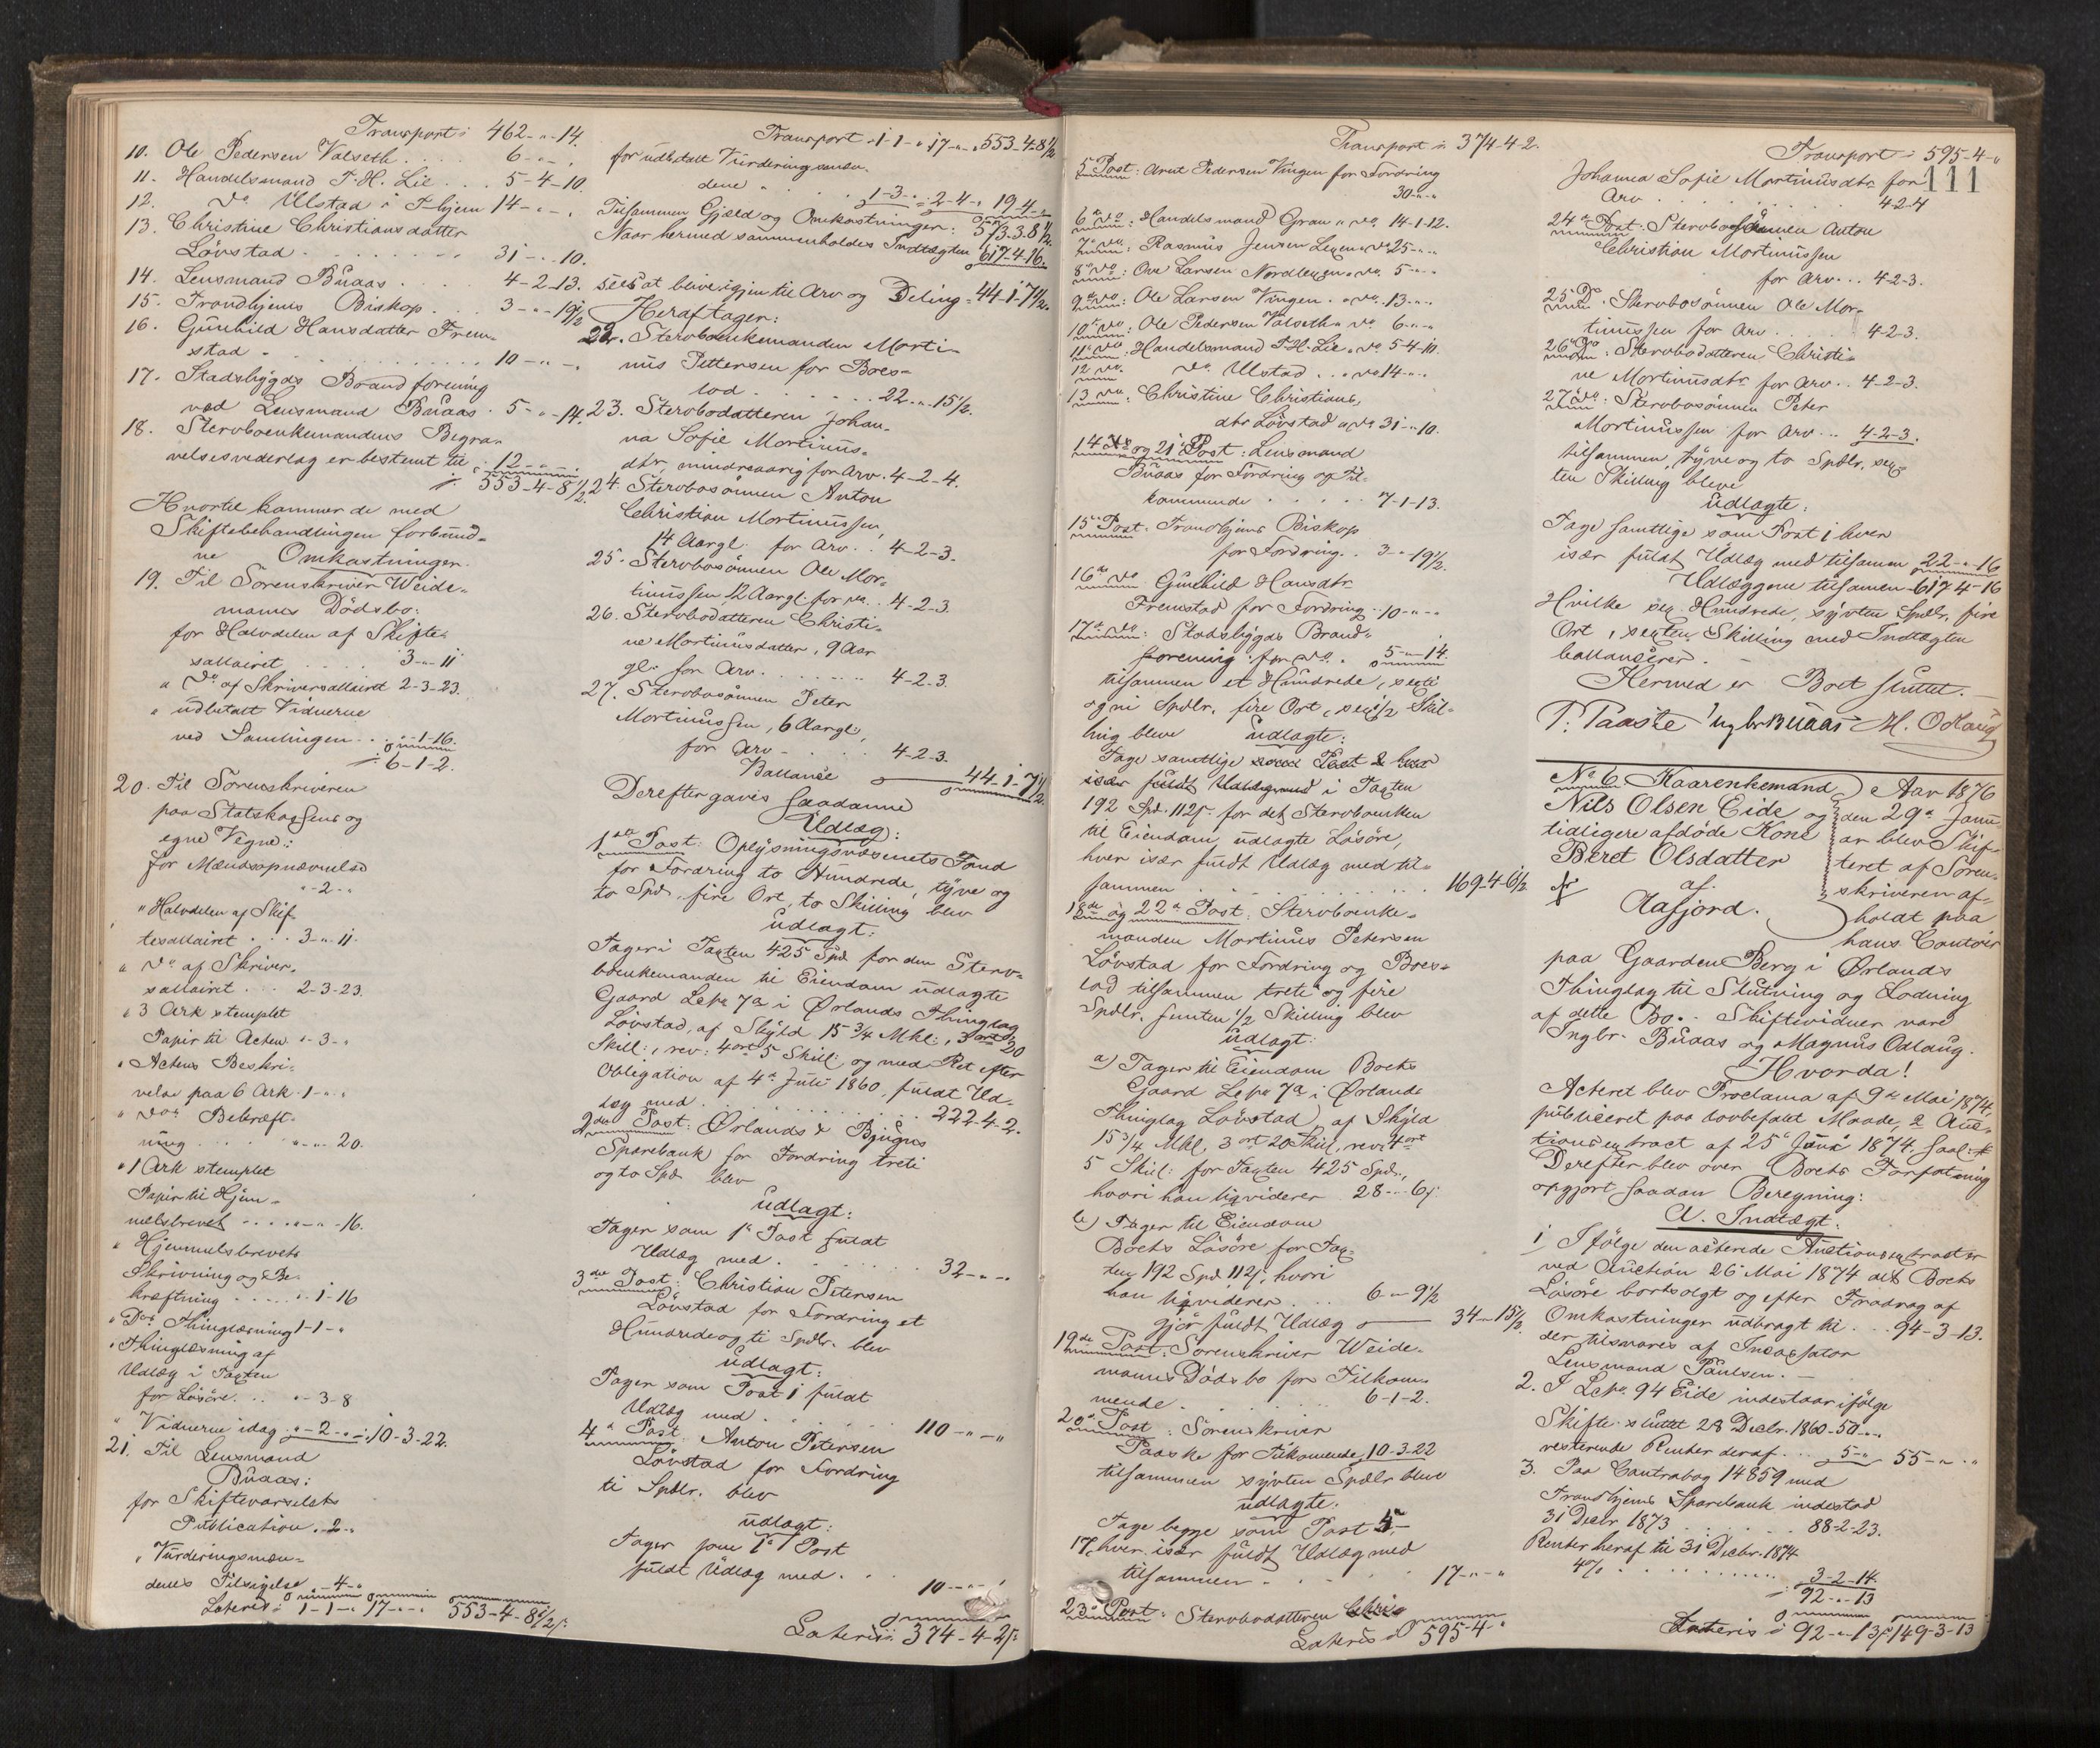 Transport: 462-"-14.
10. Ole Pedersen Valseth . . . . 6-"-"
11. Handelsmand T. H. Lie . . . 5-4-10.
12. do Ulstad i T-hjem 14-"-"
13. Christine Christiansdatter
Lövstad . . . . . . . 31-"-10.
14. Lensmand Buaas . . . . 4-2-13.
15. Trondhjems Biskop . . . 3-"-19½
16. Gunhild Hansdatter Frem-
stad . . . . . . . . 10-"-"
17. Stadsbygds Brandforening
ved Lensmand Buaas . 5-"-14.
18. Sterboenkemandens Begra-
velsesvederlag er bestemt til 12-"-"
553-4-8½
Hvortil kommer de med
Skiftebehandlingen forbund-
ne Omkostninger.
19. Til Sorenskriver Weide-
manns Dödsbo:
for Halvdelen af Skifte-
sallairet . . . . 3-"-11
" do af Skriversallairet 2-3-23.
" udbetalt Vidnerne
ved Samlingen . . "-1-16.
6-1-2.
20. Til Sorenskriveren
paa Statskassens og
egne Vegne:
for Mændsopnævnelse
"-2-"
" Halvdelen af Skif-
tesallairet . . . 3-"-11.
" do af Skriver-
sallairet . . . 2-3-23.
" 3 Ark stemplet
Papir til Acten "-3-"
" Actens Beskri-
velse paa 6 Ark 1-"-"
" dos Bekræft-
ning . . . . "-"-20.
" 1 Ark stemplet
Papir til Hjem-
melsbrevet . . . "-"-16.
" Hjemmelsbrevets
Skrivning og Be-
kræftning . . . . "-1-16
" Dos Thinglæsning 1-1-"
" Thinglæsning af
Udlæg i Taxten
for Lösöre . . . "-3-8
" Vidnerne idag "-2-" 10-3-22.
21. Til Lensmand
Buaas:
for Skiftevarselets
Publication "-2-"
" Vurderingsmæn-
denes Tilsigelse "-4-"
Lateris: 1-1-" 17-"-" 553-4-8½
Transport 1-1-" 17-"-" 553-4-8½
for udbetalt Vurderingsmæn-
dene " . . . 1-3-" 2-4-" 19-4-"
Tilsammen Gjæld og Omkostninger: 573-3-8½
Naar hermed sammenholdes Indtægten 617-4-16.
sees at blive igjen til Arv og Deling 44-1-7½
Heraf tager:
22. Sterboenkemanden Morti-
nus Pettersen for Boes-
lod . . . . . . 22-"-15½.
23. Sterbodatteren Johan-
na Sofie Mortinus-
dtr, mindreaarig for Arv. 4-2-4.
24. Sterbosönnen Anton
Christian Mortinussen,
14 Aar gl. for Arv . . 4-2-3.
25. Sterbosönnen Ole Mor-
tinussen 12 Aar gl. for do . 4-2-3.
26. Sterbodatteren Christi-
ne Mortinusdatter, 9 Aar
gl. for Arv . . . . . . 4-2-3.
27. Sterbosönnen Peter
Mortinussen, 6 Aar gl,
for Arv . . . . 4-2-3.
Ballance 44-1-7½
Derefter gaves saadanne
Udlæg:
1ste Post: Oplysningsvæsenets Fond
for Fordring to Hundrede, tyve og
to Spd. fire Ort, to Skilling blev
udlagt:
Tager i Taxten 425 Spd. for den Sterv-
boenkemanden til Eiendom udlagte
Gaard Lepo 7a i Ørlands Thinglag
Lövstad, af Skyld 15¾ Mkl:, 3 ort 20
Skill:, rev: 4 ort 5 Skill: og med Ret efter
Obligation af 4de Juli 1860 fuldt Ud-
læg med . . . . . . . . . 222-4-2.
2den Post: Ørlands & Bjugns
Sparebank for Fordring treti
og to Spd blev
udlagt:
Tager som 1ste Post fuldt
Udlæg med . . . . . . . 32-"-"
3die Post: Christian Petersen
Lövstad for Fordring et
Hundrede og ti Spdlr. blev
udlagt:
Tager som Post 1 fuldt
Udlæg med . . . . . 110-"-"
4de Post: Anton Petersen
Lövstad for Fordring
ti Spdlr. blev
udlagt:
Tager som 1ste Post
fuldt Udlæg med . . . 10-"-"
Lateris: 374-4-2
Transport: 374-4-2.
5 Post: Arnt Pedersen Vingen for Fordring
30-"-"
6te do: Handelsmand Gran " do. 14-1-12.
7de do: Rasmus Jensen Lexen " do 25-"-"
8de do: Ove Larsen Nordlexen " do 5-"-"
9de do: Ole Larsen Vingen " do 13-"-"
10de do: Ole Pedersen Valseth " do 6-"-"
11te do: Handelsmand T. H. Lie " do 5-4-10.
12 do. do Ulstad . . " do 14-"-"
13 do: Christine Christians-
dtr Lövstad " do 31-"-10.
14de og 21de Post: Lensmand
Buaas for Fordring og Til-
kommende . . . . 7-1-13.
15de Post: Trondhjems Biskop
for Fordring . . 3-"-19½.
16de do Gunhild Hansdtr
Fremstad for Fordring 10-"-"
17de do: Stadsbygds Brand-
forening for do . 5-"-14.
tilsammen et Hundrede, sexti
og ni Spdlr, fire Ort, sex ½ Skil-
ling bleve udlagte:
Tage samtlige i Taxten
192 Spd. 112 s. for det Sterboenken
til Eiendom udlagte Lösöre,
hver især fuldt Udlæg med til-
sammen . . . . . . . . . 169-4-6½
18de og 22de Post: Sterboenke-
manden Mortinus Petersen
Lövstad for Fordring og Boes-
lod tilsammen treti og fire
Spdlr. femten ½ Skilling blev
udlagt:
a) Tager til Eiendom Boets
Gaard Lepo 7a i Ørlands
Thinglag Lövstad, af Skyld
15¾ Mkl, 3 ort 20 Skill, rev: 4 ort
5 Skill: for Taxten 425 Spd.,
hvori han liqviderer 28-"-6
b) Tager til Eiendom
Boets Lösöre for Tax-
ten 192 Spd 112 s, hvori
han liqviderer . . . 6-"-9½
gjör fuldt Udlæg 34-"-15½
19de Post: Sorenskriver Weide-
manns Dödsbo for Tilkom-
mende . . . . . . 6-1-2.
20de Post: Sorenskriver
Paaske for Tilkommende 10-3-22
tilsammen sytten Spdlr blev
udlagte:
Tage begge som Post 5-
17, hver især fuldt Udlæg med
tilsammen . . . . . . 17-"-"
23de Post: Sterbodatteren
Lateris 595-4-"
Transport: 595-4-"
111
Johanna Sofie Mortinusdtr for
Arv . . . . . . . 4-2-4
24de Post: Sterbosönnen Anton
Christian Mortinussen
for Arv . . . 4-2-3.
25 Do: Sterbosönnen Ole Mor-
tinussen for Arv . . . . 4-2-3.
26 Do: Sterbodatteren Christi-
ne Mortinusdtr for Arv . . 4-2-3.
27de do: Sterbosönnen Peter
Mortinussen for Arv . . 4-2-3.
tilsammen, tyve og to Spdlr, sex-
ten Skilling bleve
udlagte:
Tage samtlige som Post 1 hver
især fuldt Udlæg med tilsamen 22-"-16
Udlæggene tilsamen 617-4-16
Hvilke sex Hundrede, sytten Spdlr, fire
Ort, sexten Skilling med Indtægten
ballancerer.
Hermed er Boet sluttet.
P. Paaske Ingbr Buaas M. Odlaug
No 6. Kaarenkemand
Nils Olsen Eide og
tidligere afdöde Kone
Beret Olsdatter
af
Aafjord.
Aar 1876
den 29de Janu-
ar blev Skif-
teret af Soren-
skriveren af-
holdt paa
hans Contoir
paa Gaarden Berg i Ørlands
Thinglag til Slutning og Lodning
af dette Bo. Skiftevidner vare
Ingbr. Buaas og Magnus Odlaug.
Hvorda!
Acteret blev Proclama af 9de Mai 1874,
publiceret paa lovbefalet Maade, 2 Auc-
tionsextract af 25de Juni 1874.
Derefter blev over Boets Forfatning
opgjort saadan Beregning:
A. Indtægt:
1, Ifölge den acterede Auctionsextract er
ved Auction 26 Mai 1874 alt Boets
Lösöre bortsolgt og efter Fradrag af
Omkostninger udbragt til . . . 94-3-13.
der tilsvares af Incassator
Lensmand Paulsen. —
2. I Lepo. 94 Eide indestaar ifölge
Skifte sluttet 28 Decbr. 1860 - 50-"-"
resterende Renter deraf . . . 5-" 55-"-"
3. Paa Contrabog 14859 med
Trondhjems Sparebank indestod
31 Decbr 1873 . . . . . . 88-2-23.
Renter heraf til 31 Decbr. 1874
4% . . . . . . . . 3-2-14.
92-"-13
Lateris: 92-"-13 149-3-13